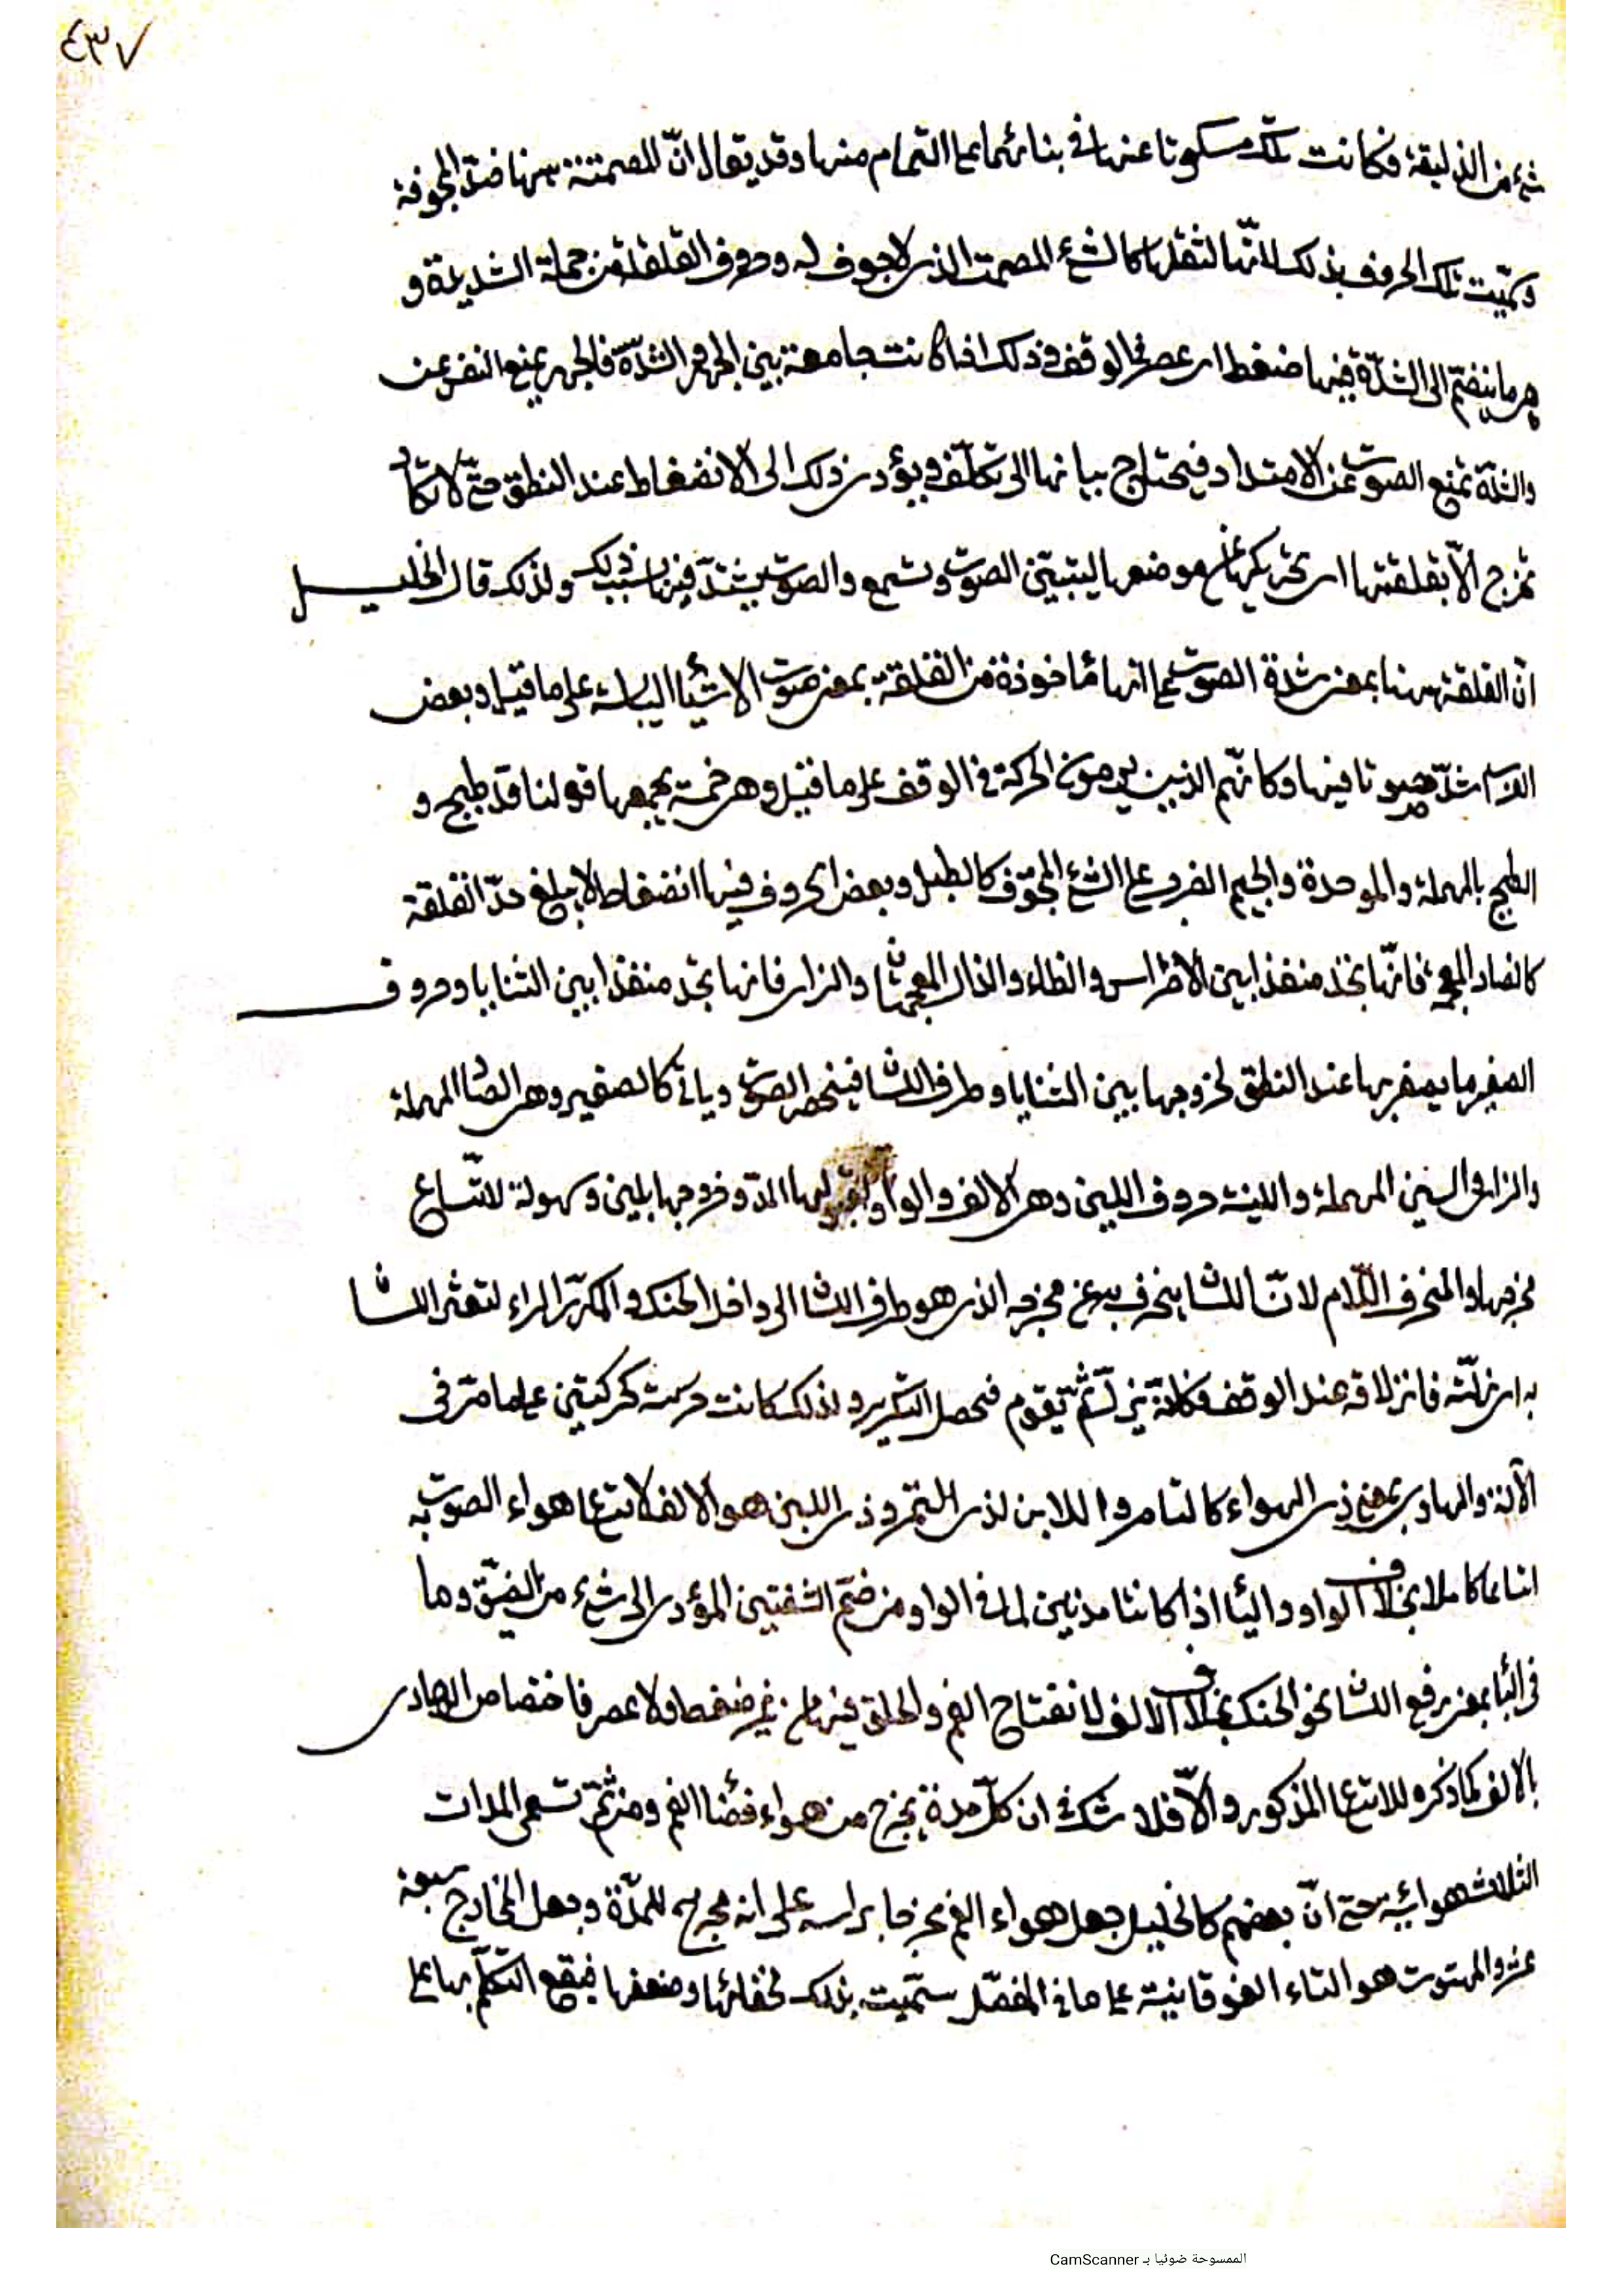 ٤٣٧
شيء من الذليقة فكانت تلك مسكوتا عنها في بنائهما على التمام منها وقد يقال انّ المصمتة ههنا ضدّ المجوفة
وسمّيت تلك الحروف بذلك لانّها لثقلها كالشيء المصمت الذي لا جوف له وحروف القلقلة من جملة الشديدة و
هي ما ينضمّ الى الشدّة فيها ضغط اي عصر في الوقف وذلك اذا كانت جامعة بين الجهر والشدّة فالجهر يمنع النفس عن
والشدّة تمنع الصوت عن الامتداد فيحتاج بيانها الى تكلّف ويؤدي ذلك الى الانضغاط عند النطق حتّى لا تكاد
تخرج الّا بقلقلتها اي تحريكها عن موضعها ليتبيّن الصوت وتسمع والصوت يشتدّ فيها بسبب ذلك ولذلك قال الخليل
انّ القلقة ههنا بمعنى شدة الصوت على انها مأخوذة من القلقة بمعنى صوت الاشياء اليابسة على ما قيل وبعض
الناس اشدّ صوتا فيها وكانّهم الذين يرومون الحركة في الوقف على ما قيل وهي خمسة يجمعها قولنا قد طبج و
الطبج بالمهملة والموحدة والجيم الضرب على الشيء المجوّف كالطبل وبعض الحروف فيها انضغاط لا يبلغ حدّ القلقة
كالضاد المعجمة فانّها تجد منفذا بين الاضراس والظاء والذال المعجمتان والزاي فانها تجد منفذا بين الثنايا وحروف
الصفير ما يصفر بها عند النطق لخروجها بين الثنايا وطرف اللسان فينحصر الصوت ويأتي كالصفير وهي الصاد المهملة
والزاي والسين المهملة واللينة حروف اللين وهي الالف والواو لقبولها المدّ وخروجها بلين وسهولة لاتّساع
مخرجها والمنحرف اللّام لانّ اللسان ينحرف به عن مخرجه الذي هو طرف اللسان الى داخل الحنك والمكرّر الراء لتعثر اللسان
به اي زلّته فانزلاقه عند الوقف فكانّه يزلّ ثمّ يقوم فحصل التكرير ولذلك كانت حركته كحركتين على ما مرّ في
الآلة والهاوي بمعنى ذي الهواء كالتامر واللابن لذي التمر وذي اللبن هو الالف لاتساع هواء الصوت به
اتساعا كاملا بخلاف الواو والياء اذا كانتا مدّتين لما في الواو من ضمّ الشفتين المؤدي الى شيء من الضيق وما
في الياء بمعنى رفع اللسان نحو الحنك بخلاف الالف لانفتاح الفم والحلق فيها من غير ضغط ولا عصر فاختصاص الهاوي
بالالف كما ذكره للاتساع المذكور والّا فلا شك في ان كلّ مدة يخرج من هواء فضاء الفم ومن ثمّ تسمى المدات
الثلاث هوائية حتى انّ بعضهم كالخليل جعل هواء الفم مخرجا برأسه على انه مخرج للمدّة وجعل المخارج سبعة
عشر والمهتوت هو التاء الفوقانية على ما في المفصّل سمّيت بذلك لخفائها وضعفها فيقع التكلّم بها على
الممسوحة ضوئيا بـ CamScanner